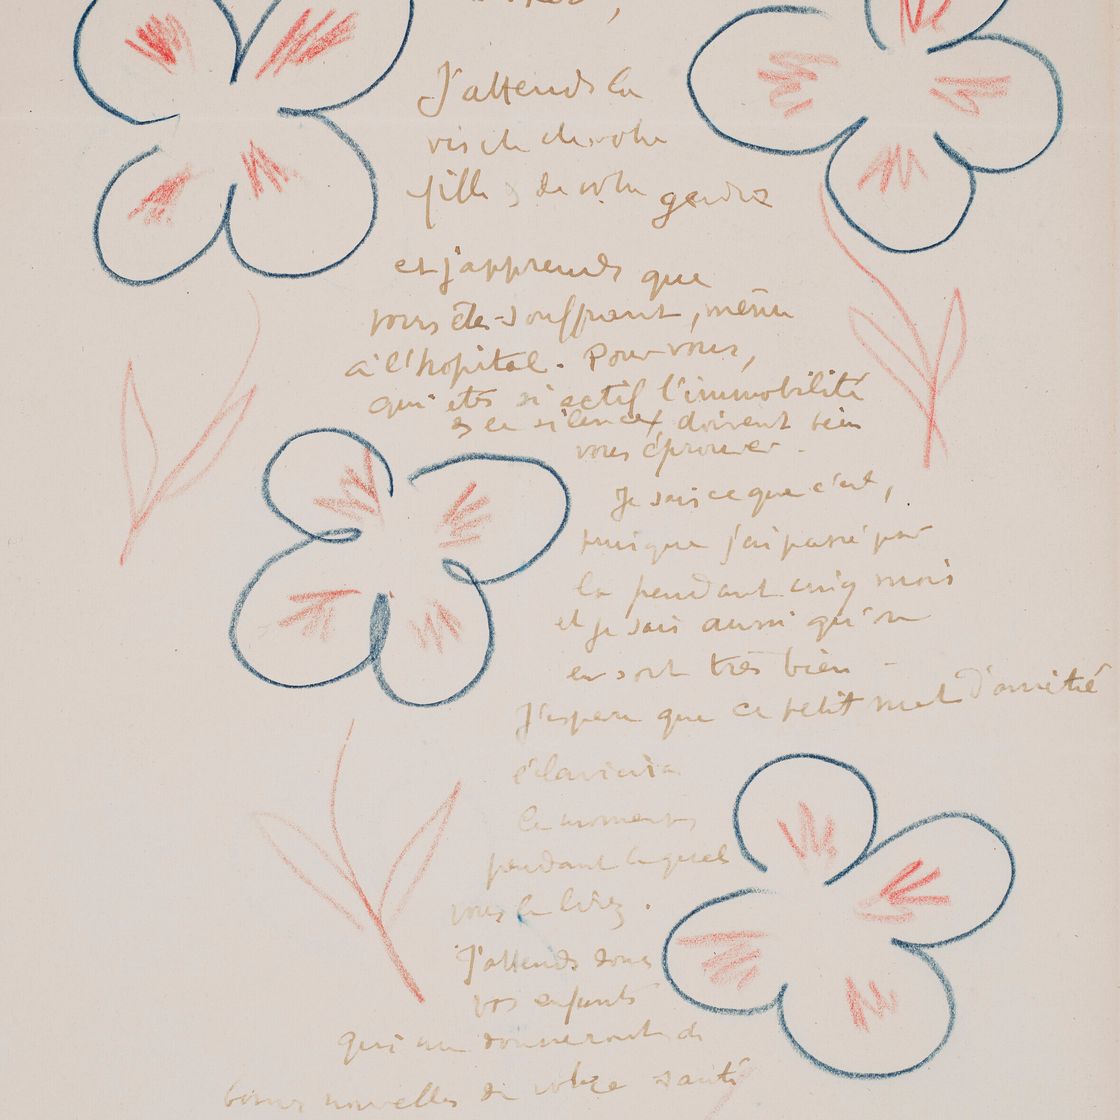 J'attends la
visite de votre
fille & de votre gendre
et j'apprends que
vous êtes souffrant, même
à l'hopital. Pour vous,
qui etes si actif l'immobilité
& le silence, doivent bien
vous éprouver.
Je sais ce que c'est,
puisque j'ai passé par
la pendant cinq mois
et je sais aussi qu'on
en sort très bien -
J'espere que ce petit mot d'amitié
éclaircira
le moment,
pendant lequel
vous le lirez.
J'attends donc
vos enfants
qui me donneront de
bonnes nouvelles de votre santé